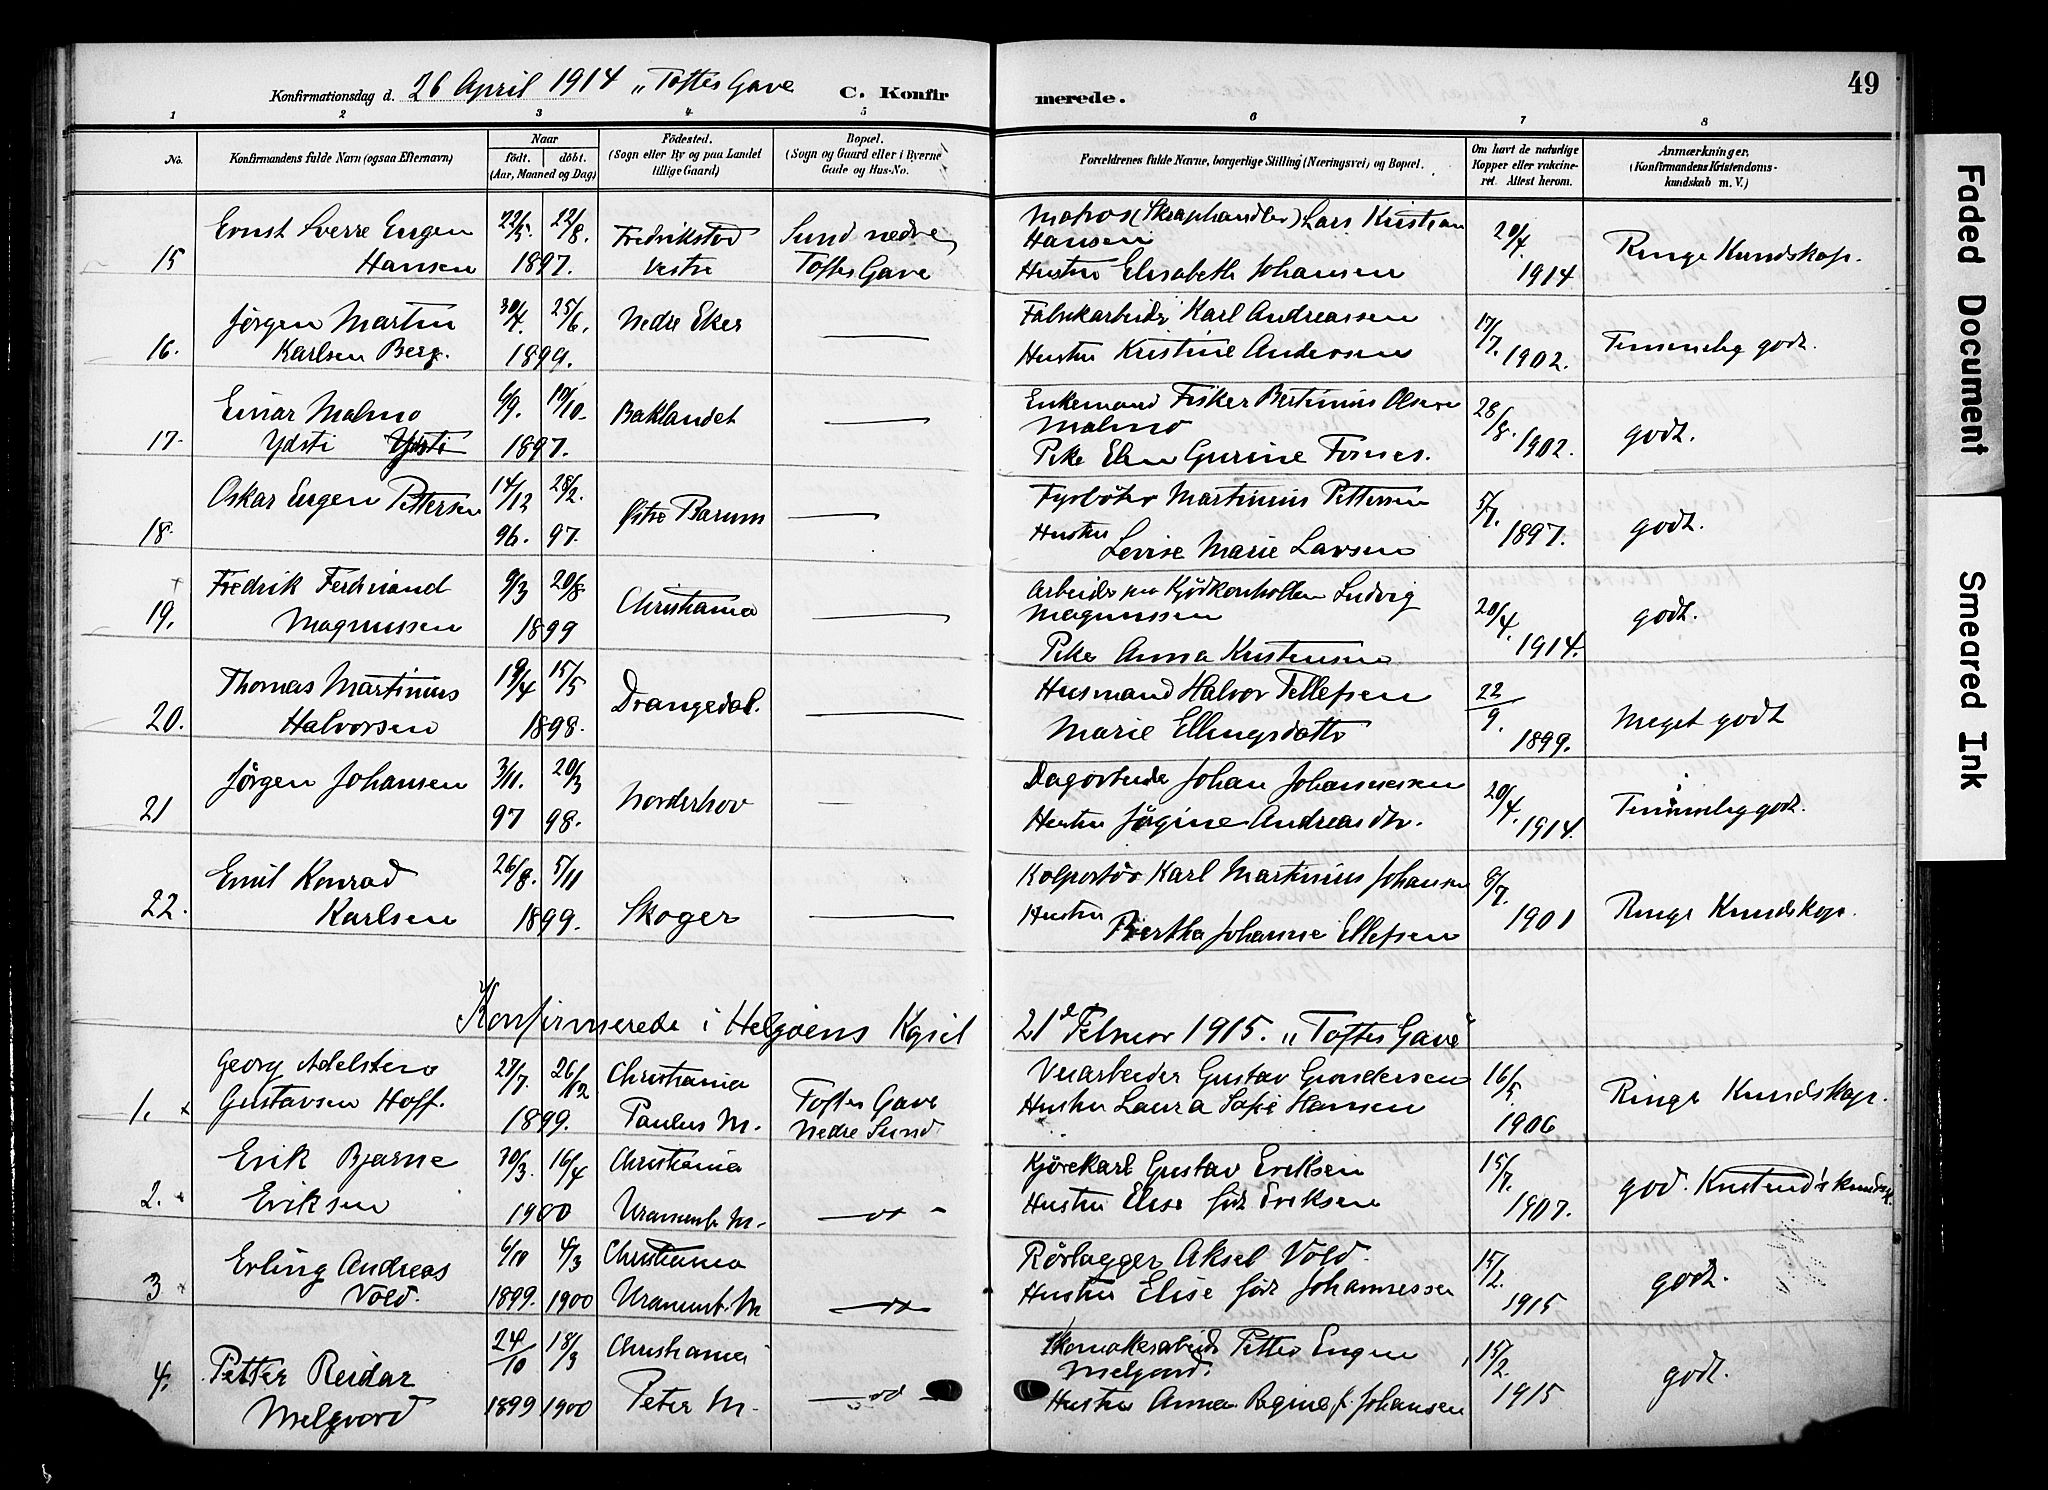 Konfirmationsdag d. 26 April 1914 „Toftes Gave C. Konfirmerede. 49
1 2 3 4 5 6 7 8
No.
Konfirmandens fulde Navn (ogsaa Efternavn)
Naar
födt. döbt.
(Aar, Maaned og Dag)
Födested.
(Sogn eller By og paa Landet
tillige Gaard)
Bopæl.
(Sogn og Gaard eller i Byerne
Gade og Hus-No.
Forældrenes fulde Navne, borgerlige Stilling (Næringsvei) og Bopæl.
Om havt de naturlige
Kopper eller vakcine-
ret. Attest herom.
Anmærkninger.
(Konfirmandens Kristendoms-
kundskab m. V.)
Ernst Sverre Eugen 22/5. 22/8. Fredrikstad Sund nedre Matros (Skraphandler) Lars Kristian 20/4
Hansen
15 Hansen 1897. Vestre Toftes Gave Hustru Elisabeth Johansen 1914 Ringe Kundskap.
Jörgen Martin 30/4. 25/6. Nedre Eker Fabrikarbeider Karl Andreassen 17/7.
16. Karlsen Berg. 1899. Hustru Kristine Andersen 1902. Temmelig godt.
Einar Malmo 6/9. 10/10. Baklandet Enkemand Fisker Bertinius Olsen 28/8.
Malmo
17. Ydsti Ydsti 1897. Pike Elen Gurine Fornes. 1902. godt.
Oskar Eugen Pettersen 14/12 28/2. Östre Bærum Fyrböter Martinius Pettersen 5/7.
18. 96. 97. Hustru Levise Marie Larsen 1897. godt.
Fredrik Ferdinand 9/3 20/8 Christiania Arbeider paa Kjödkontrollen Ludvig 20/4.
Magnussen
19. Magnussen 1899 Pike Anna Kristensen 1914. godt.
Thomas Martinius 19/4 15/5 Drangedal. Husmand Halvor Tellefsen 22/9.
20. Halvorsen 1898. Marie Ellingsdatter 1899. Meget godt
Jörgen Johansen 3/11. 20/3 Norderhov Dagarbeider Johan Johannessen 20/4
21 97 98. Hustru Jörgine Andreasdtr. 1914. Temmelig godt.
Emil Konrad 26/8. 5/11 Kolportör Karl Martinius Johansen 8/7.
22. Karlsen 1899. Skoger Hustru Bertha Johanne Ellefsen 1901 Ringe Kundskap.
Konfirmerede i Helgöens Kapel 21d Februar 1915. „Toftes Gave"
Georg Adelsten 27/7. 26/12 Christiania Veiarbeider Gustav Gundersen 16/5
1. Gustavsen Hoff. 1899. Paulus M. Toftes Gave Nedre Sund Hustru Laura Sofie Hansen 1906 Ringe Kundskap.
Erik Bjarne 30/3. 16/4 Christiania Kjörekarl Gustav Eriksen 15/7.
2. Eriksen 1900 Uranienb. M. Hustru Elise föd Eriksen 1907. god. Kristendskundsk.
Erling Andreas 6/10 4/3 Christiania Rörlægger Aksel Vold. 15/2.
3 Vold. 1899. 1900 Uranienb. M Hustru Elise föd Johannessen 1915 godt.
24/10 18/3 Christiania Skomakerarbeid. Petter Eugen 15/2.
4. Petter Reidar Melgaard.
Melgaard 1899 1900 Peter M. Hustru Anna Regine f. Johansen 1915 godt.
Faded Document
Smeared Ink